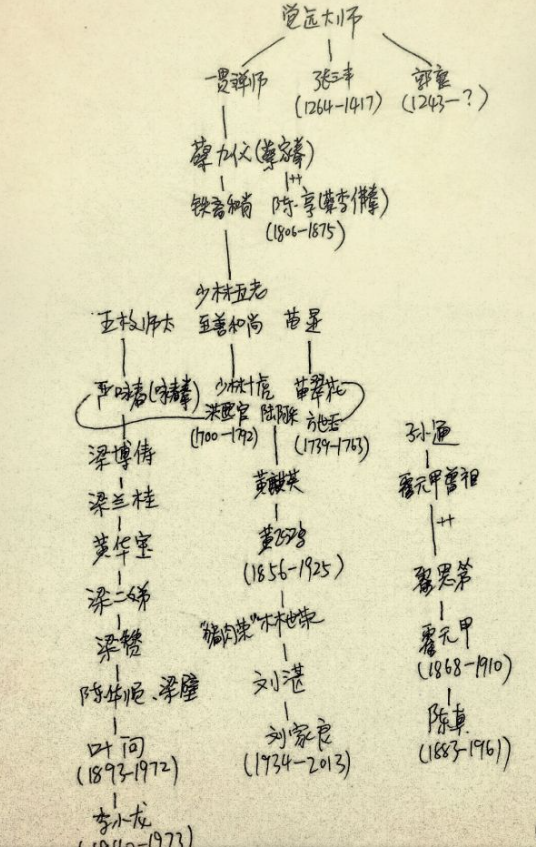 觉远大师
一贯禅师 张三丰 郭襄
(1264-1417) (1243-?)
蔡九仪(蔡家拳)
铁斋和尚 陈亨(蔡李佛拳)
(1806-1875)
少林五老
五枚师太 至善和尚 苗显
严咏春(咏春拳) 少林十虎 苗翠花
洪熙官 陆阿采 方世玉
(1700-1792) (1739-1763)
孙通
梁博俦 霍元甲曾祖
黄麒英
梁兰桂
黄华宝 黄飞鸿
(1856-1925)
霍恩第
梁二娣
"猪肉荣"林世荣
梁赞 霍元甲
(1868-1910)
陈华顺、梁璧 刘湛
陈真
叶问 刘家良 (1883-1961)
(1893-1972) (1934-2013)
李小龙
(1940-1973)